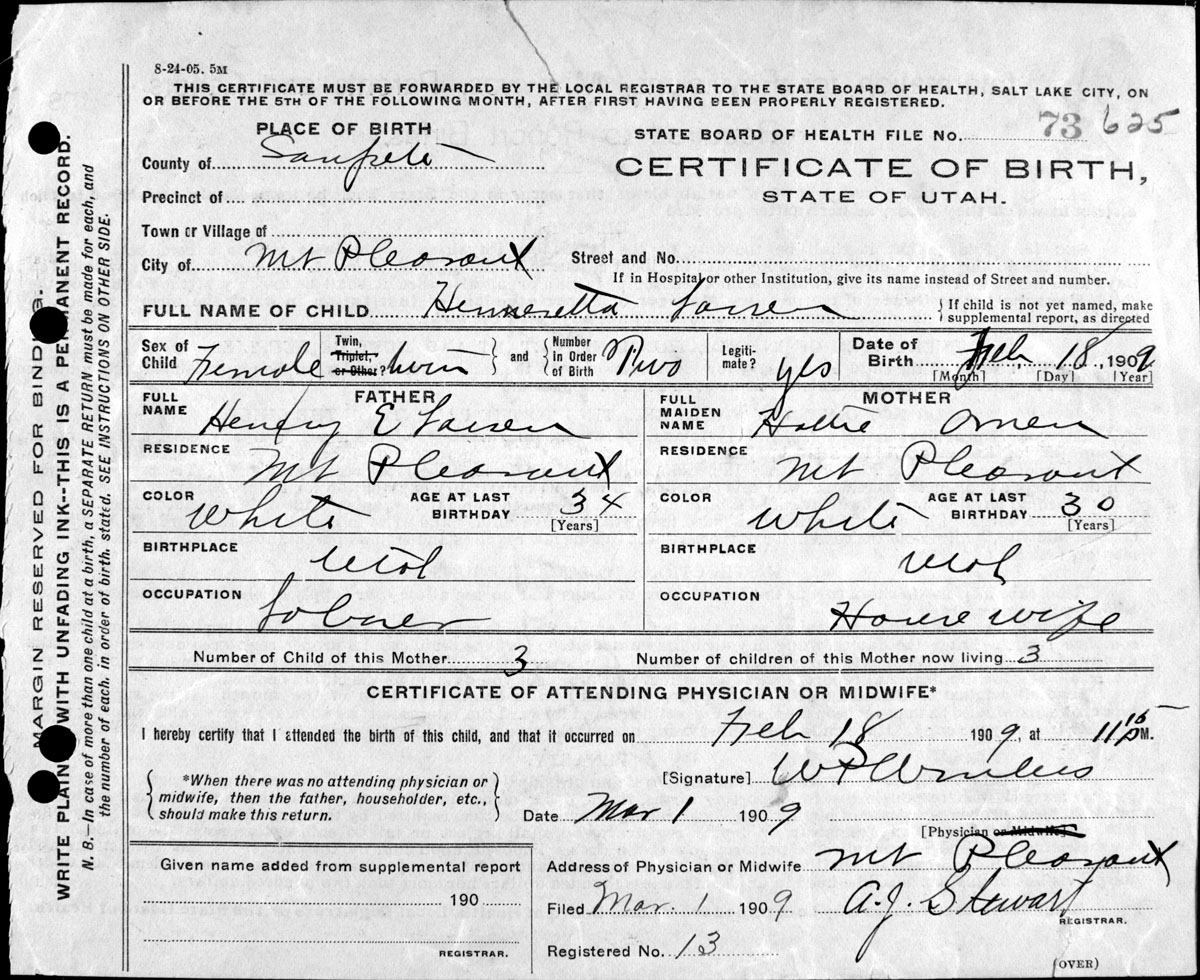 8-24-05. 5M
THIS CERTIFICATE MUST BE FORWARDED BY THE LOCAL REGISTRAR TO THE STATE BOARD OF HEALTH, SALT LAKE CITY, ON
OR BEFORE THE 5TH OF THE FOLLOWING MONTH, AFTER FIRST HAVING BEEN PROPERLY REGISTERED.
PLACE OF BIRTH
STATE BOARD OF HEALTH FILE No. 73 625
County of Sanpete
CERTIFICATE OF BIRTH,
STATE OF UTAH.
Precinct of
Town or Village of
City of Mt Pleasant
Street and No.
If in Hospital or other Institution, give its name instead of Street and number.
FULL NAME OF CHILD Henneretta Larsen { If child is not yet named, make
supplemental report, as directed
Sex of Child Female Twin, Triplet, or Other? twin } and { Number In Order of Birth Two Legiti-mate? yes Date of Birth Feb 18, 1909
[Month] [Day] [Year]
FATHER
FULL NAME Henry E Larsen
RESIDENCE Mt Pleasant
COLOR White AGE AT LAST BIRTHDAY 34 [Years]
BIRTHPLACE Utah
OCCUPATION Laborer
MOTHER
FULL MAIDEN NAME Hattie
RESIDENCE Mt Pleasant
COLOR White AGE AT LAST BIRTHDAY 30 [Years]
BIRTHPLACE Utah
OCCUPATION Housewife
Number of Child of this Mother 3 Number of children of this Mother now living 3
CERTIFICATE OF ATTENDING PHYSICIAN OR MIDWIFE*
I hereby certify that I attended the birth of this child, and that it occurred on Feb 18 1909, at 11 15 P M.
{ *When there was no attending physician or
midwife, then the father, householder, etc.,
should make this return. }
[Signature] W P
Date Mar 1 1909
[Physician or Midwife]
Given name added from supplemental report
190
REGISTRAR.
Address of Physician or Midwife Mt Pleasant
Filed Mar. 1 1909 A. J. Stewart
REGISTRAR.
Registered No. 13
(OVER)
MARGIN RESERVED FOR BINDING.
WRITE PLAINLY WITH UNFADING INK--THIS IS A PERMANENT RECORD.
N. B.—In case of more than one child at a birth, a SEPARATE RETURN must be made for each, and
the number of each, in order of birth, stated. SEE INSTRUCTIONS ON OTHER SIDE.